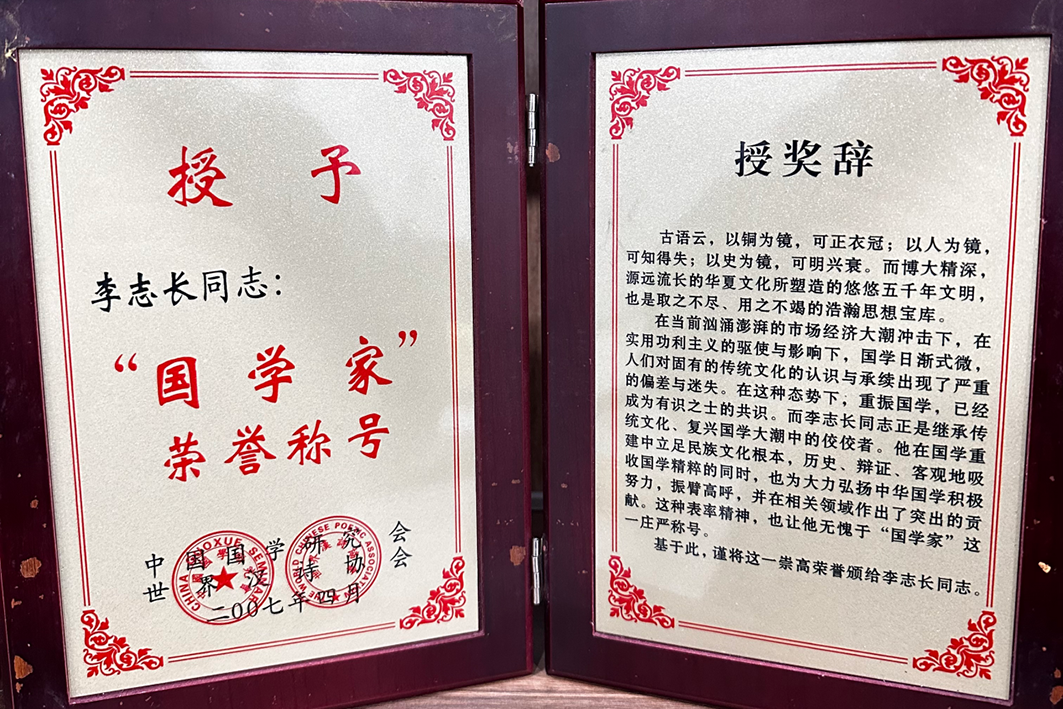 授予
李志长同志：
“国学家”
荣誉称号
中国国学研究会
世界汉诗协会
二〇〇七年四月
CHINA GUOXUE SEMINAR
WORLD CHINESE POETIC ASSOCIATION
授奖辞
古语云，以铜为镜，可正衣冠；以人为镜，
可知得失；以史为镜，可明兴衰。而博大精深，
源远流长的华夏文化所塑造的悠悠五千年文明，
也是取之不尽、用之不竭的浩瀚思想宝库。
在当前汹涌澎湃的市场经济大潮冲击下，在
实用功利主义的驱使与影响下，国学日渐式微，
人们对固有的传统文化的认识与承续出现了严重
的偏差与迷失。在这种态势下，重振国学，已经
成为有识之士的共识。而李志长同志正是继承传
统文化、复兴国学大潮中的佼佼者。他在国学重
建中立足民族文化根本，历史、辩证、客观地吸
收国学精粹的同时，也为大力弘扬中华国学积极
努力，振臂高呼，并在相关领域作出了突出的贡
献。这种表率精神，也让他无愧于“国学家”这
一庄严称号。
基于此，谨将这一崇高荣誉颁给李志长同志。